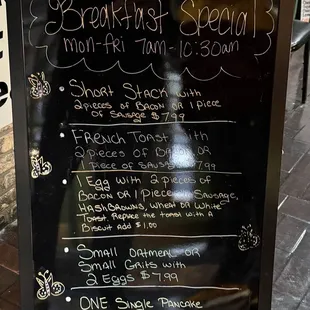 Breakfast Special
mon-fri 7am-10:30am
Short Stack with
2 pieces of Bacon or 1 piece
of Sausage $7.99
French Toast with
2 pieces of Bacon or
1 piece of Sausage $7.99
1 Egg with 2 pieces of
Bacon or 1 piece Sausage,
Hashbrowns, Wheat or White
Toast. Replace the toast with a
Biscuit add $1.00
Small Oatmeal or
Small Grits with
2 Eggs $7.99
One Single Pancake